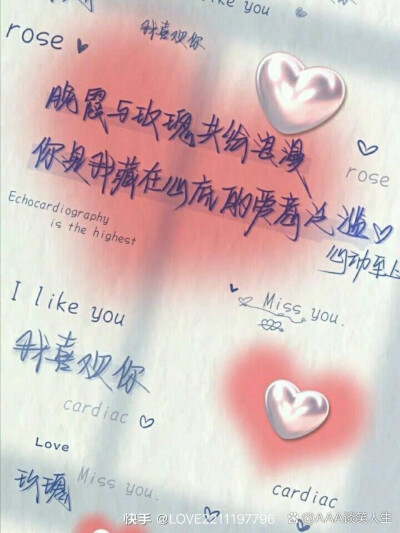 I like you
我喜欢你
rose
晚霞与玫瑰共纷浪漫
rose
你是我藏在心底的爱意泛滥
Echocardiography
is the highest
心动至上
I like you
Miss you.
我喜欢你
cardiac
Love
玫瑰
Miss you.
cardiac
快手 @LOVE2211197796
@AAA谈笑人生